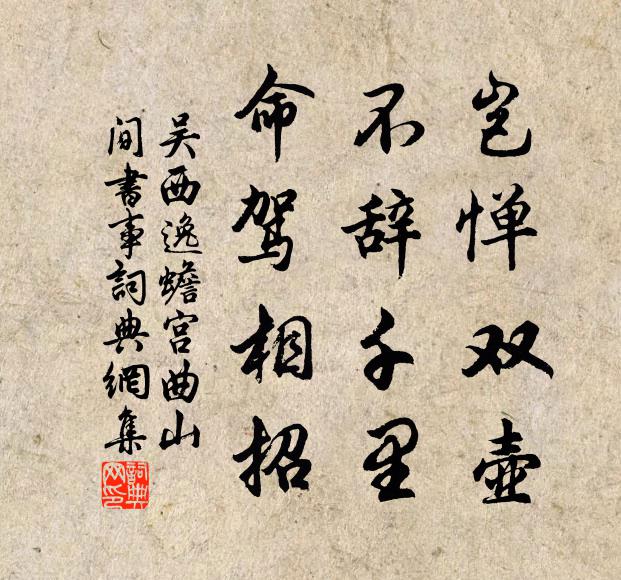 岂惮双壶
不辞千里
命驾相招
吴西逸蟾宫曲山
间書事詞典網集
詞典
网印